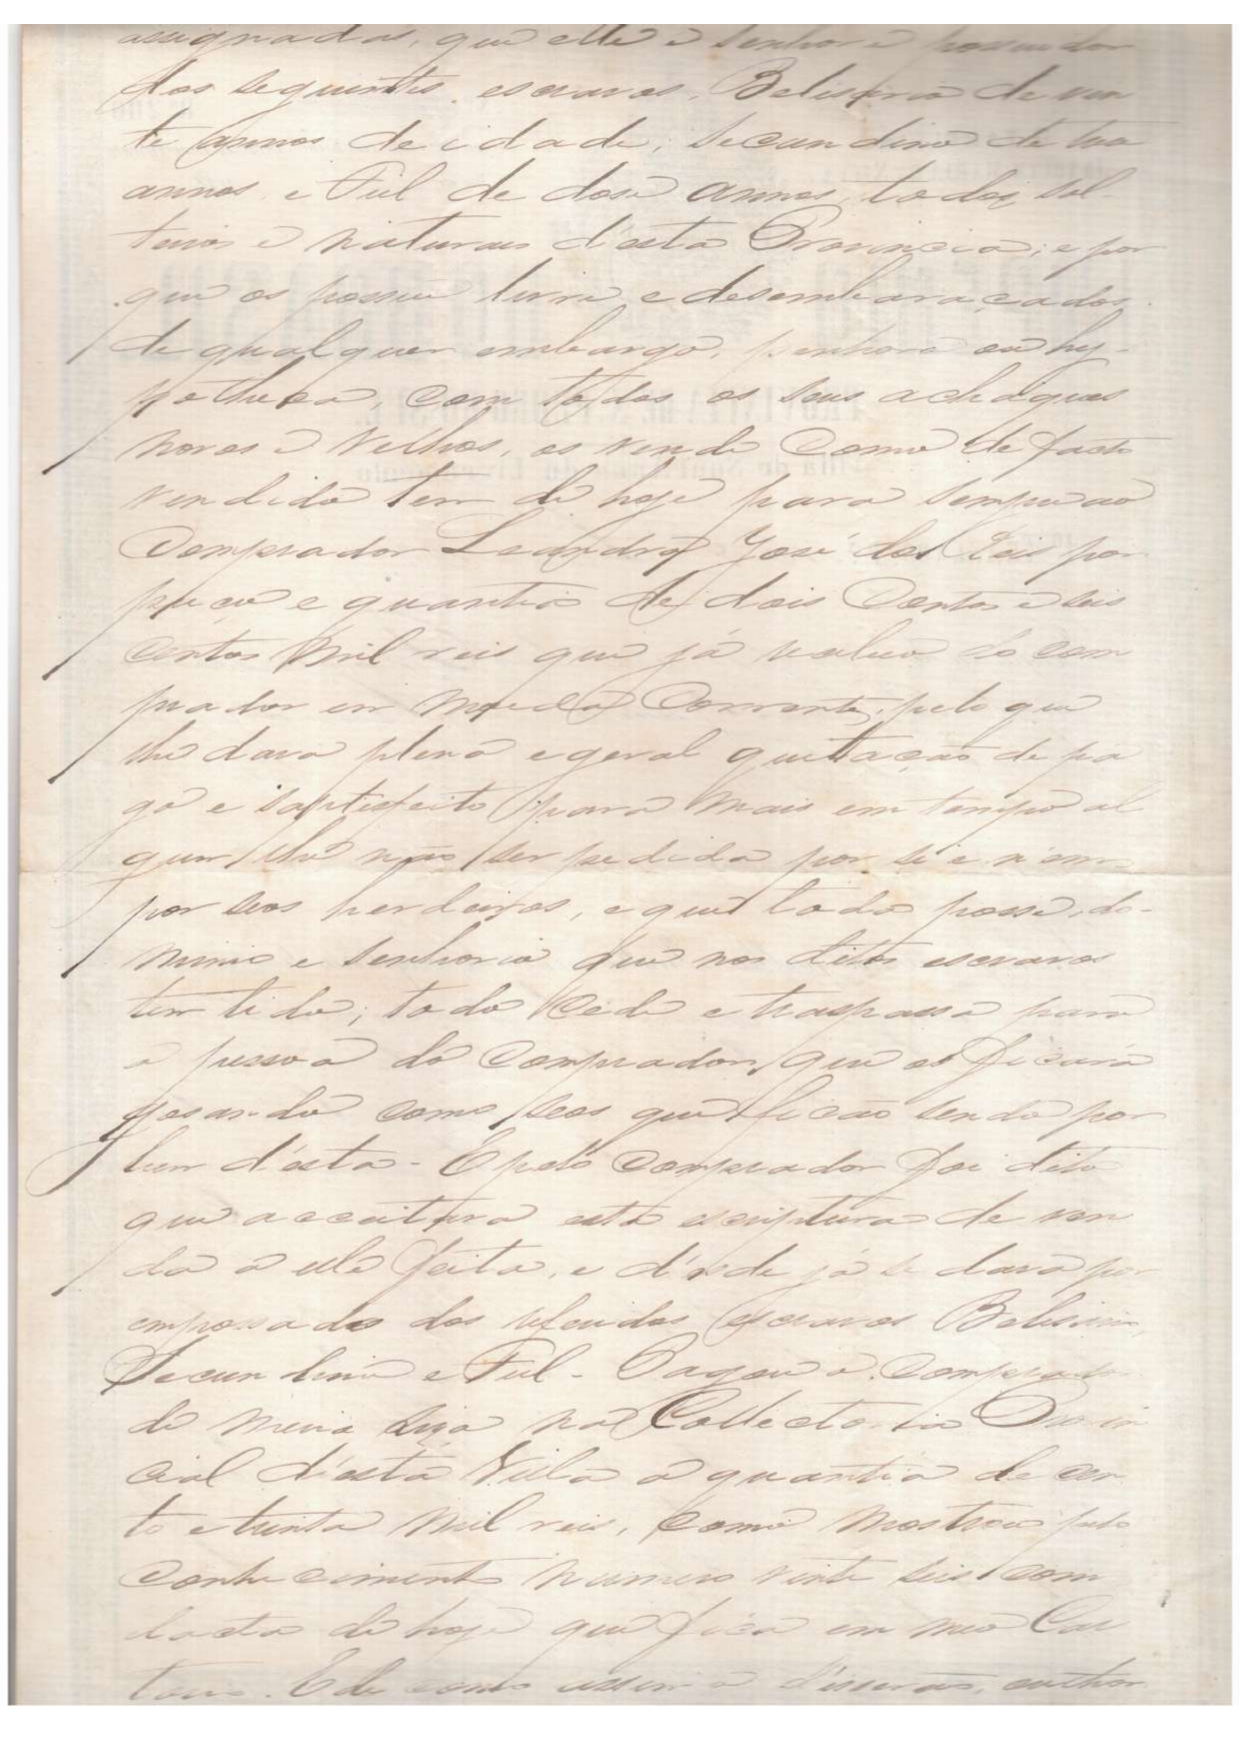 assignadas, que elle é senhor e possuidor
dos seguintes escravos, Belisario de vin
te annos de idade, Secundino de tres
annos, e Ful de dose annos, todos sol-
teiros e naturaes d'esta Provincia; e por
que os possue livre e desembaraçados
de qualquer embargo, penhora ou hy-
potheca, com todos os seus achaques
novos e velhos, os vende como de facto
vendido tem de hoje para sempre ao
Comprador Leandro José dos Reis por
preço e quantia de dois Contos e seis
centos mil reis que já recebeo do com
prador em moeda Corrente, pelo que
lhe dava plena e geral quitação de pa
go e satisfeito para mais em tempo al
gum lhe não ser pedida por si e nem
por seos herdeiros, e que toda posse, do-
minio e senhoria que nos ditos escravos
tem tido; todo cede e traspassa para
a pessoa do Comprador, que os ficará
gosando como seos que ficão sendo por
bem d'esta - E pelo Comprador foi dito
que acceitava esta escriptura de ven
da a elle feita, e d'esde já se dava por
empossado dos referidos escravos Belisario,
Secundino e Ful - Pagou o Comprador
de meia siza na Collectoria Provin
cial d'esta Villa a quantia de cen
to e trinta mil reis, como mostrou pelo
conhecimento numero vinte seis com
dacta de hoje que fica em meo Car
torio. E de como assim o disserão,